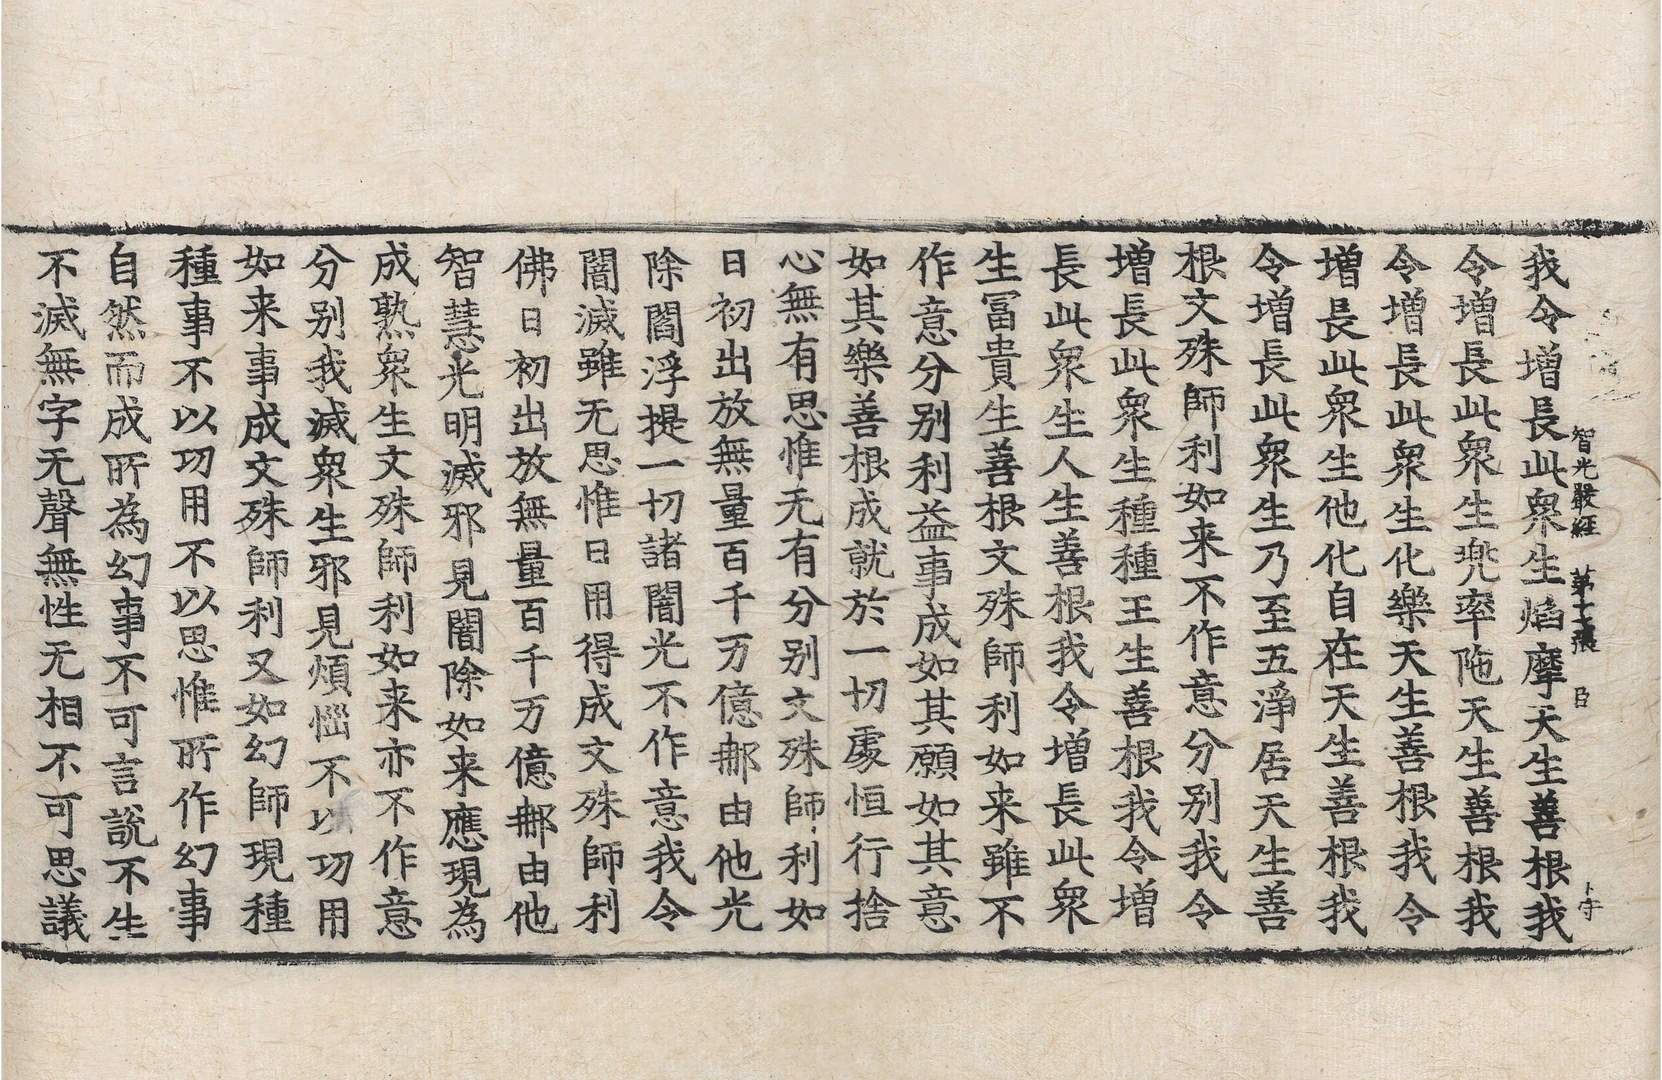 智光嚴經 第十七張 臣
我令增長此衆生焰摩天生善根我
令增長此衆生兜率陁天生善根我
令增長此衆生化樂天生善根我令
增長此衆生他化自在天生善根我
令增長此衆生乃至五淨居天生善
根文殊師利如来不作意分别我令
增長此衆生種種王生善根我令增
長此衆生人生善根我令增長此衆
生冨貴生善根文殊師利如来雖不
作意分别利益事成如其願如其意
如其樂善根成就於一切處恒行捨
心無有思惟无有分别文殊師利如
日初出放無量百千万億𨚗由他光
除閻浮提一切諸闇光不作意我令
闇滅雖无思惟日用得成文殊師利
佛日初出放無量百千万億𨚗由他
智慧光明滅邪見闇除如来應現為
成熟衆生文殊師利如来亦不作意
分别我滅衆生邪見煩惱不以功用
如来事成文殊師利又如幻師現種
種事不以功用不以思惟所作幻事
自然而成所為幻事不可言說不生
不滅無字无聲無性无相不可思議